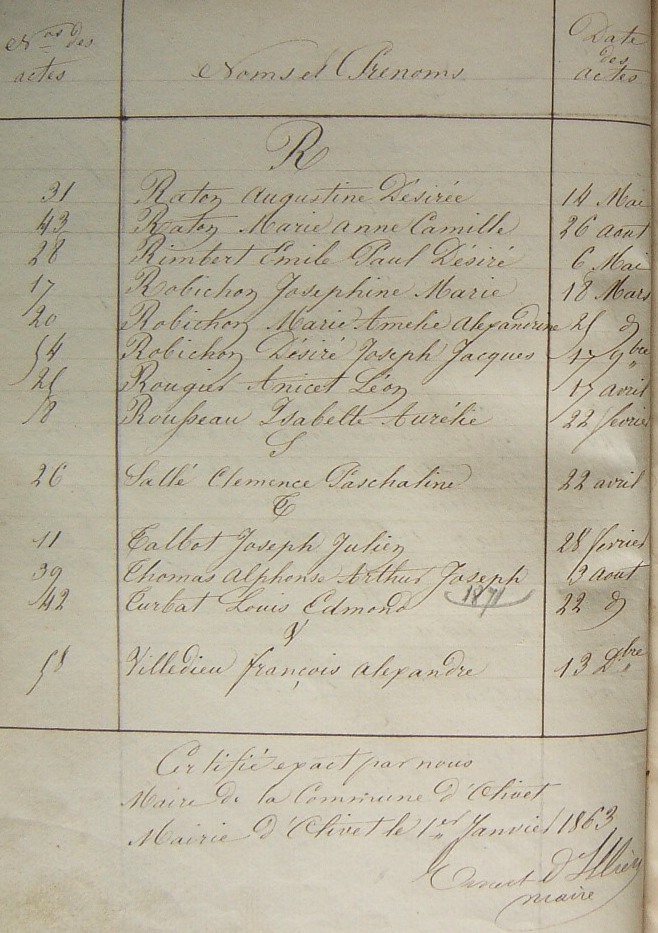 Nos des actes Noms et Prenoms Date des actes
R
31 Raton Augustine Désirée 14 Mai
43 Raton Marie Anne Camille 26 aout
28 Rimbert Emile Paul Désiré 6 Mai
17 Robichon Josephine Marie 18 Mars
20 Robichon Marie Amelie Alexandrine 25 d
54 Robichon Désiré Joseph Jacques 17 9bre
25 Rougier Anicet Léon 17 avril
8 Rousseau Isabelle Aurélie 22 fevrier
S
26 Sallé Clemence Paschaline 22 avril
T
11 Talbot Joseph Julien 28 fevrier
39 Thomas Alphonse Arthur Joseph 13 aout
42 Turbat Louis Edmond 1871 22 d
V
58 Villedieu françois Alexandre 13 Dbre
Certifié exact par nous
Maire de la Commune d'Olivet
Mairie d'Olivet le 1er Janvier 1863
maire